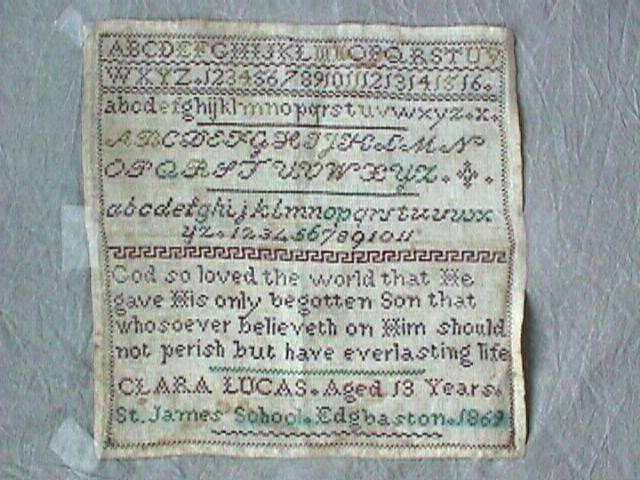 ABCDEFGHIJKLMNOPQRSTUV
WXYZ.123456789101112131415 16.
abcdefghijklmnopqrstuvwxyz.x.
ABCDEFGHIJKLMN
OPQRSTUVWXYZ.
abcdefghijklmnopqrstuvwx
yz.1234567891011
God so loved the world that He
gave His only begotten Son that
whosoever believeth on Him should
not perish but have everlasting life
CLARA LUCAS. Aged 13 Years.
St. James School. Edgbaston. 1869